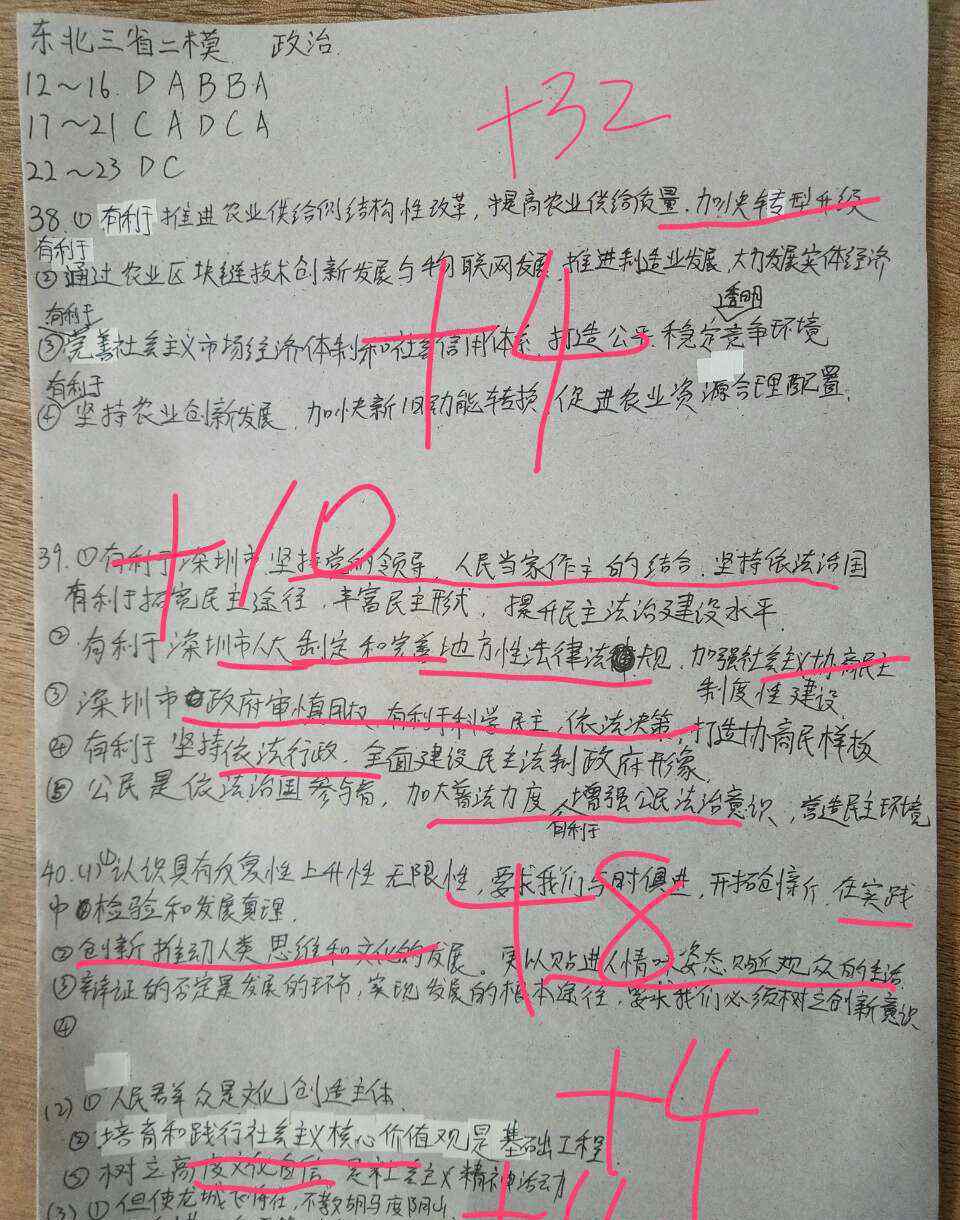 东北三省二模 政治
12~16. D A B B A
17~21 C A D C A
+32
22~23 D C
38.① 有利于推进农业供给侧结构性改革，提高农业供给质量.加快转型升级
有利于
②通过农业区块链技术创新发展与物联网发展，推进制造业发展.大力发展实体经济
有利于 透明
③完善社会主义市场经济体制和社会信用体系，打造公平.稳定竞争环境
有利于
④坚持农业创新发展，加快新旧动能转换，促进农业资源合理配置.
+4
+10
39.①有利于深圳市坚持党的领导、人民当家作主的结合.坚持依法治国
有利于拓宽民主途径，丰富民主形式，提升民主法治建设水平.
②有利于深圳市人大制定和完善地方性法律法规，加强社会主义协商民主
制度性建设.
③深圳市政府审慎用权，有利于科学民主，依法决策，打造协商民样板
④有利于坚持依法行政，全面建设民主法制政府形象.
⑤公民是依法治国参与者，加大普法力度，增强公民法治意识，营造民主环境
有利于
40.(1)①认识具有反复性上升性无限性，要求我们与时俱进，开拓创新，在实践
中检验和发展真理.
+8
②创新推动人类思维和文化的发展。更以贴进人情的姿态贴近观众的生活.
③辩证的否定是发展的环节，实现发展的根本途径，要求我们必须树立创新意识
④
+4
(2)①人民群众是文化创造主体.
②培育和践行社会主义核心价值观是基础工程.
③树立高度文化自信 是社会主义精神活动
(3)①但使龙城飞将在，不教胡马度阴山.